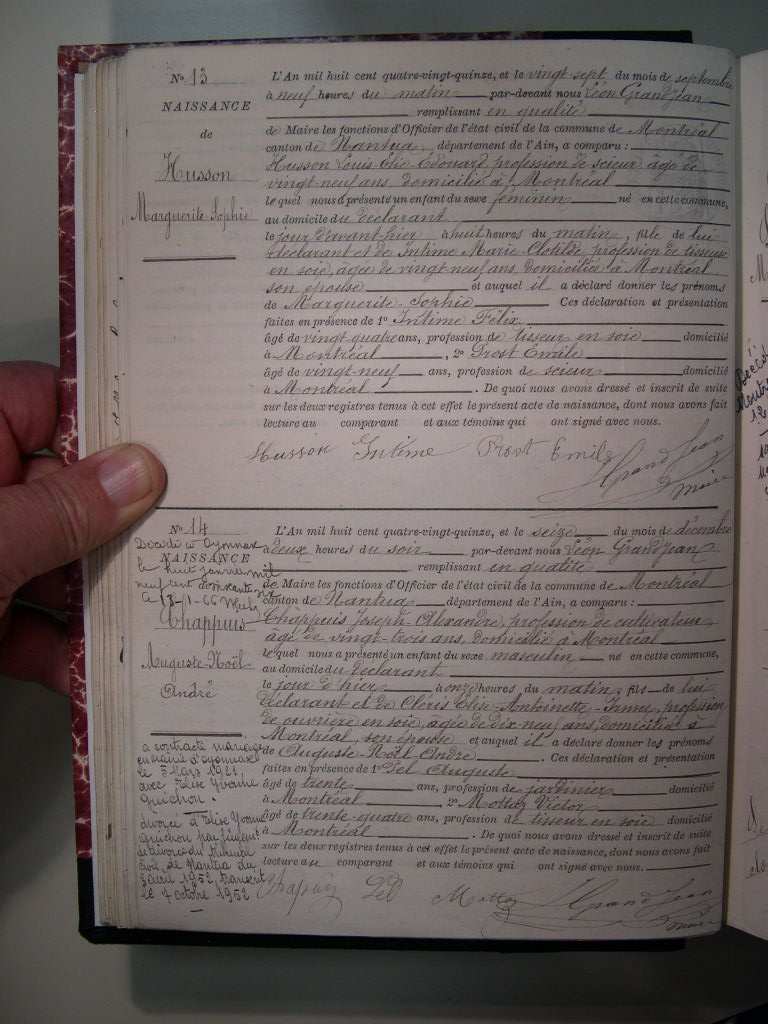 No 13
NAISSANCE
de
Husson
Marguerite Sophie
L'An mil huit cent quatre-vingt-quinze, et le vingt sept du mois de septembre
à neuf heures du matin par-devant nous Léon Grandjean
remplissant en qualité
de Maire les fonctions d'Officier de l'état civil de la commune de Montréal
canton de Nantua, département de l'Ain, a comparu :
Husson Louis Elie Edouard, profession de scieur âgé de
vingt-neuf ans domicilié à Montréal
lequel nous a présenté un enfant du sexe féminin né en cette commune,
au domicile du déclarant
le jour d'avant-hier à huit heures du matin, fille de lui
déclarant et de Intime Marie Clotilde, profession de tisseuse
en soie, âgée de vingt neuf ans, domiciliée à Montréal
son épouse et auquel il a déclaré donner les prénoms
de Marguerite-Sophie Ces déclaration et présentation
faites en présence de 1o Intime Félix
âgé de vingt quatre ans, profession de tisseur en soie domicilié
à Montréal, 2o Prost Emile
âgé de vingt-neuf ans, profession de scieur domicilié
à Montréal. De quoi nous avons dressé et inscrit de suite
sur les deux registres tenus à cet effet le présent acte de naissance, dont nous avons fait
lecture au comparant et aux témoins qui ont signé avec nous.
Husson Intime Prost Emile GrandJean
maire
No 14
Décédé à Oyonnax
NAISSANCE
le huit janvier mil
neuf cent soixante six
Le 13-1-66
Chappuis
Auguste-Noël
André
a contracté mariage
en mairie d'Oyonnax
le 5 Mars 1921
avec Elise Yvonne
Guichon.
divorcé d'Elise Yvonne
Guichon par jugement
de divorce du tribunal
civil de Nantua du
3 avril 1952 transcrit
le 7 octobre 1952
L'An mil huit cent quatre-vingt-quinze, et le seize du mois de décembre
à deux heures du soir par-devant nous Léon Grandjean
remplissant en qualité
de Maire les fonctions d'Officier de l'état civil de la commune de Montréal
canton de Nantua, département de l'Ain, a comparu :
Chappuis Joseph-Alexandre, profession de cultivateur
âgé de vingt-trois ans, domicilié à Montréal
lequel nous a présenté un enfant du sexe masculin né en cette commune,
au domicile du déclarant
le jour d'hier à onze heures du matin, fils de lui
déclarant et de Cléris Elise-Antoinette-Irma, profession
de ouvrière en soie, âgée de dix neuf ans, domiciliée à
Montréal, son épouse et auquel il a déclaré donner les prénoms
de Auguste-Noël-André. Ces déclaration et présentation
faites en présence de 1o Pel Auguste
âgé de trente ans, profession de jardinier domicilié
à Montréal, 2o Mottaz Victor
âgé de trente-quatre ans, profession de tisseur en soie domicilié
à Montréal. De quoi nous avons dressé et inscrit de suite
sur les deux registres tenus à cet effet le présent acte de naissance, dont nous avons fait
lecture au comparant et aux témoins qui ont signé avec nous.
Chapuis Pel Mottaz GrandJean
maire